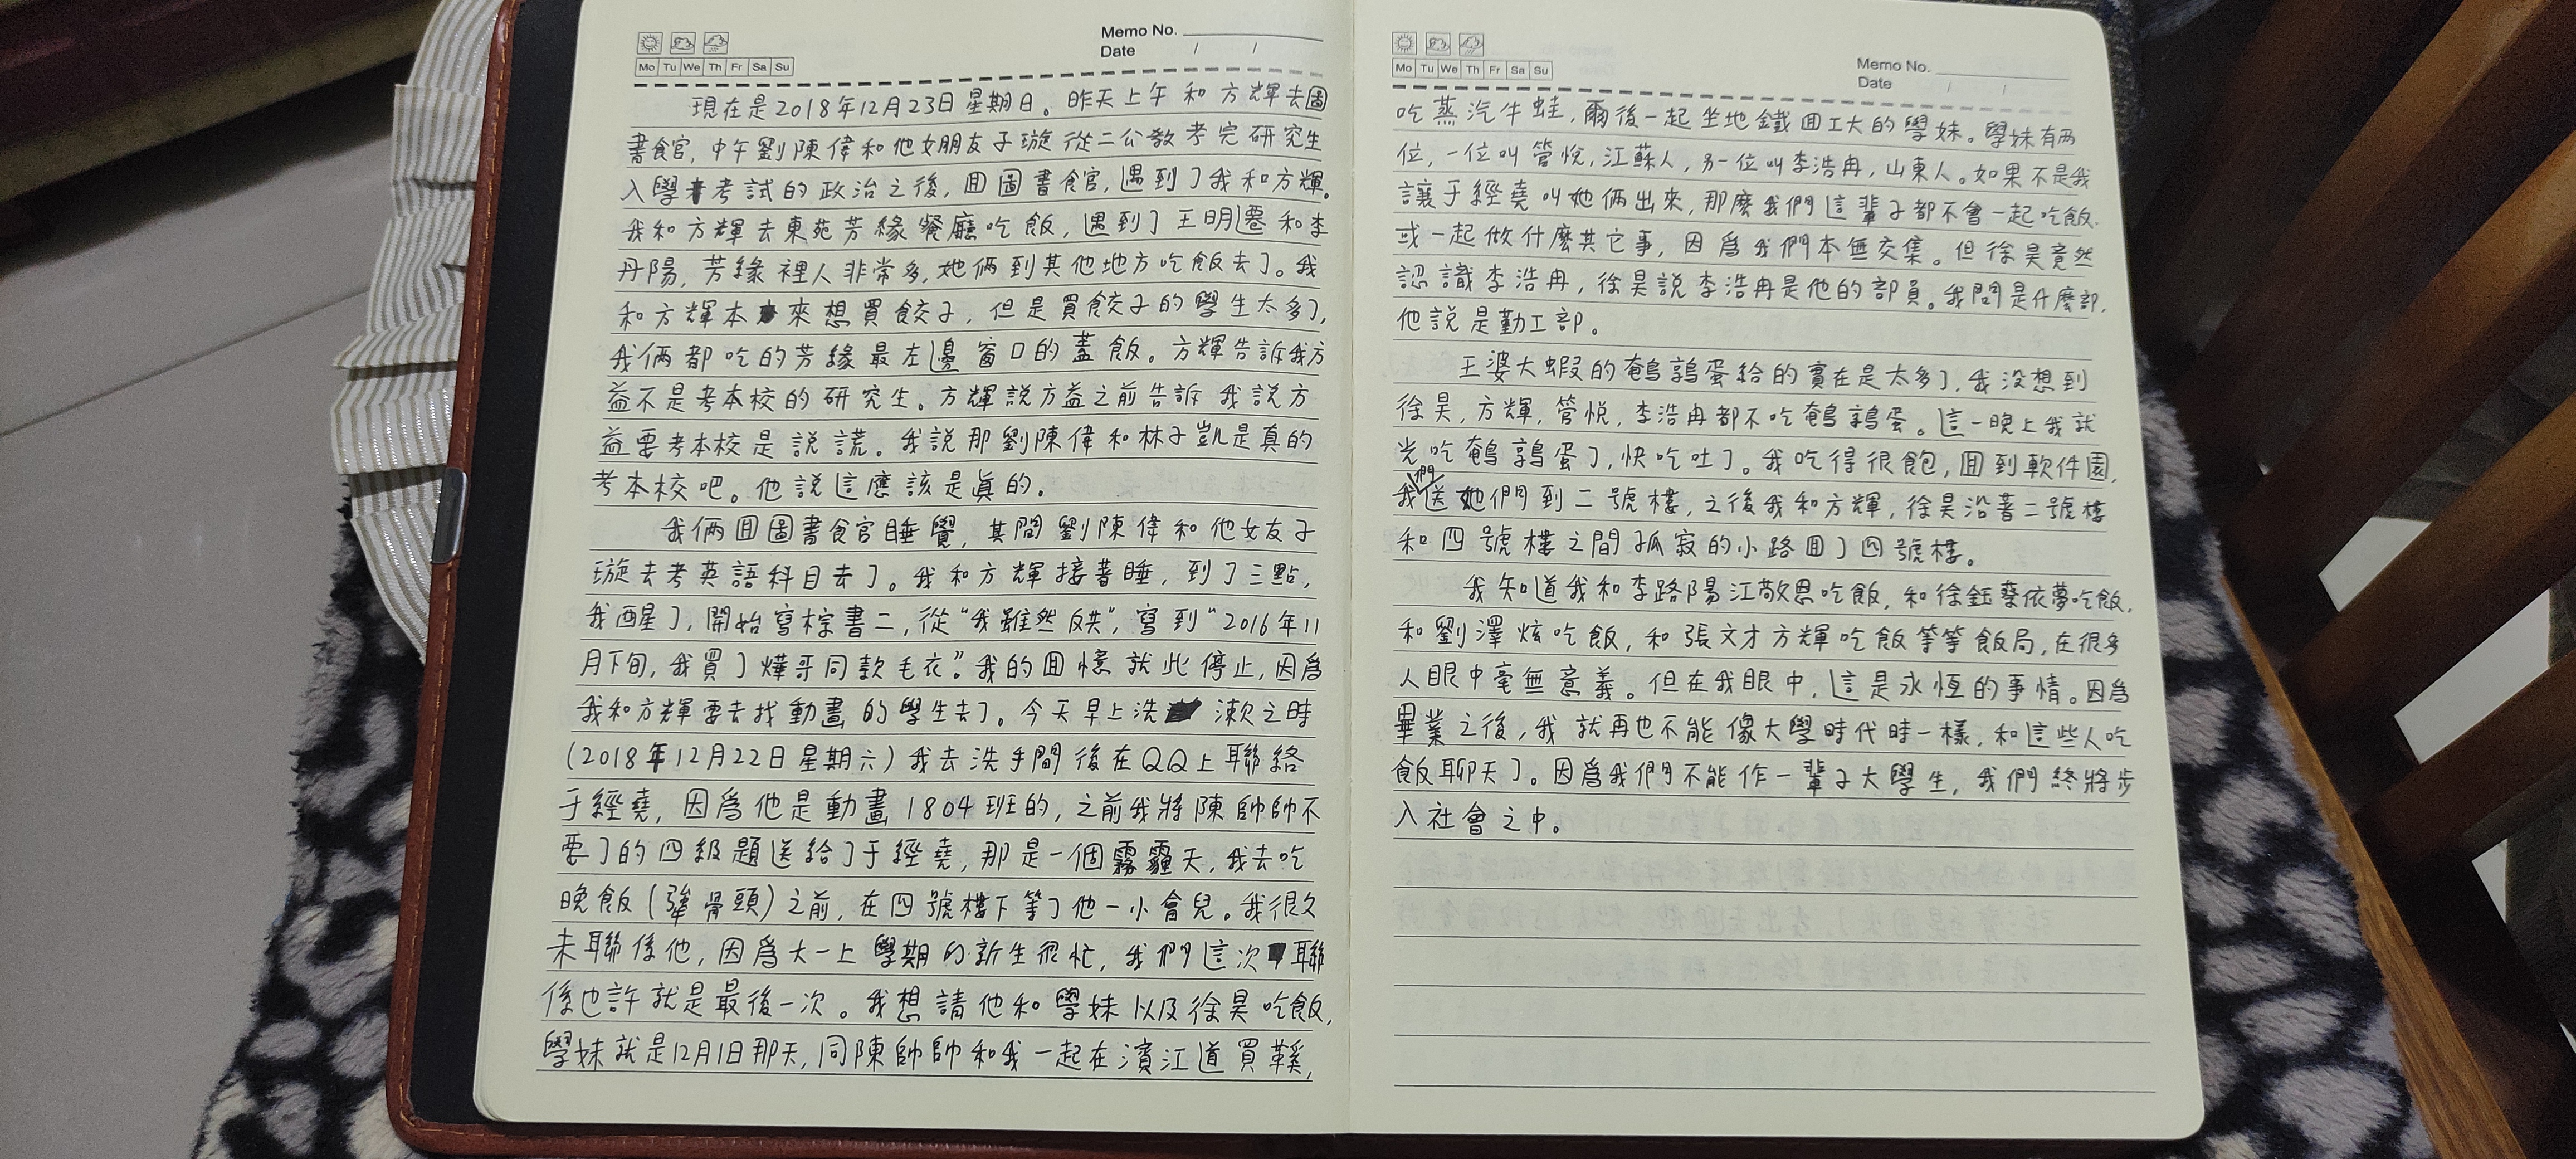 Memo No.
Date / /
Mo Tu We Th Fr Sa Su
現在是2018年12月23日星期日。昨天上午和方輝去圖
書館,中午劉陳偉和他女朋友子璇從二公教考完研究生
入學考試的政治之後,回圖書館,遇到了我和方輝。
我和方輝去東苑芳緣餐廳吃飯,遇到了王明遷和李
丹陽,芳緣裡人非常多,她倆到其他地方吃飯去了。我
和方輝本來想買餃子,但是買餃子的學生太多了,
我倆都吃的芳緣最左邊窗口的蓋飯。方輝告訴我方
益不是考本校的研究生。方輝說方益之前告訴我說方
益要考本校是說謊。我說那劉陳偉和林子凱是真的
考本校吧。他說這應該是真的。
我倆回圖書館睡覺,其間劉陳偉和他女友子
璇去考英語科目去了。我和方輝接著睡,到了三點,
我醒了,開始寫棕書二,從“我雖然反共”,寫到“2016年11
月下旬,我買了燁哥同款毛衣”。我的回憶就此停止,因為
我和方輝要去找動畫的學生去了。今天早上洗漱之時
(2018年12月22日星期六)我去洗手間後在QQ上聯絡
于經堯,因為他是動畫1804班的,之前我將陳帥帥不
要了的四級題送給了于經堯,那是一個霧霾天,我去吃
晚飯(犟骨頭)之前,在四號樓下等了他一小會兒。我很久
未聯係他,因為大一上學期的新生很忙,我們這次聯
係也許就是最後一次。我想請他和學妹以及徐昊吃飯,
學妹就是12月1日那天,同陳帥帥和我一起在濱江道買鞋,
Memo No.
Date / /
Mo Tu We Th Fr Sa Su
吃蒸汽牛蛙,爾後一起坐地鐵回工大的學妹。學妹有兩
位,一位叫管悅,江蘇人,另一位叫李浩冉,山東人。如果不是我
讓于經堯叫她倆出來,那麼我們這輩子都不會一起吃飯.
或一起做什麼其它事,因為我們本無交集。但徐昊竟然
認識李浩冉,徐昊說李浩冉是他的部員。我問是什麼部,
他說是勤工部。
王婆大蝦的鵪鶉蛋給的實在是太多了,我沒想到
徐昊,方輝,管悅,李浩冉都不吃鵪鶉蛋。這一晚上我就
光吃鵪鶉蛋了,快吃吐了。我吃得很飽,回到軟件園,
我們送她們到二號樓,之後我和方輝,徐昊沿著二號樓
和四號樓之間孤寂的小路回了四號樓。
我知道我和李路陽江敬恩吃飯,和徐鈺蔡依夢吃飯,
和劉澤炫吃飯,和張文才方輝吃飯等等飯局,在很多
人眼中毫無意義。但在我眼中,這是永恆的事情。因為
畢業之後,我就再也不能像大學時代時一樣,和這些人吃
飯聊天了。因為我們不能作一輩子大學生,我們終將步
入社會之中。